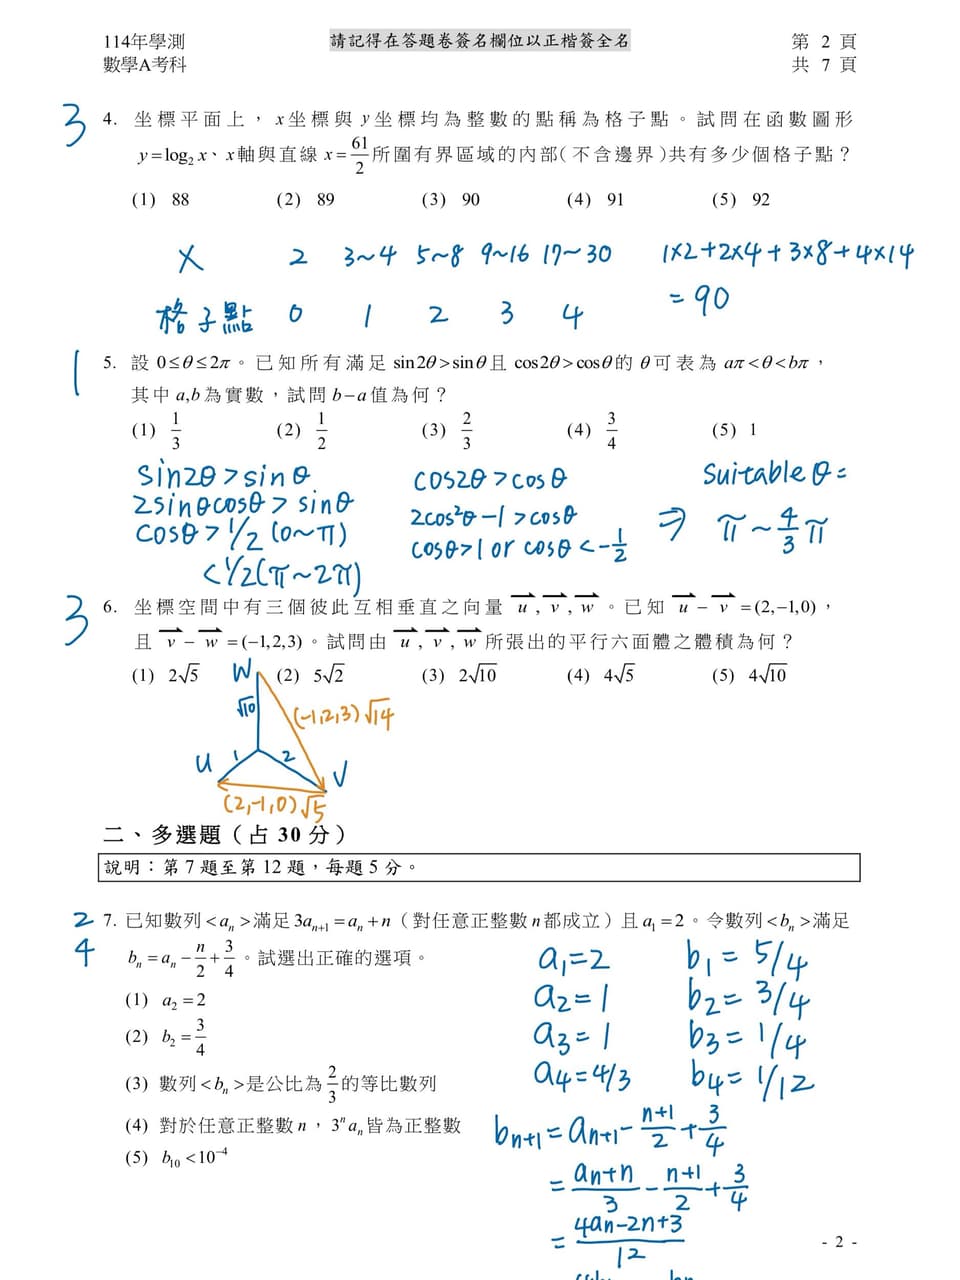 114年學測
數學A考科
請記得在答題卷簽名欄位以正楷簽全名
第 2 頁
共 7 頁
3
4. 坐標平面上，x坐標與y坐標均為整數的點稱為格子點。試問在函數圖形
y=log₂x、x軸與直線 x=61/2 所圍有界區域的內部(不含邊界)共有多少個格子點？
(1) 88 (2) 89 (3) 90 (4) 91 (5) 92
X 2 3~4 5~8 9~16 17~30 1×2+2×4+3×8+4×14
格子點 0 1 2 3 4 = 90
1
5. 設 0≤θ≤2π。已知所有滿足 sin2θ>sinθ 且 cos2θ>cosθ 的 θ 可表為 aπ<θ<bπ，
其中 a,b 為實數，試問 b−a 值為何？
(1) 1/3 (2) 1/2 (3) 2/3 (4) 3/4 (5) 1
sin2θ>sinθ
2sinθcosθ > sinθ
cosθ>1/2 (0~π)
<1/2(π~2π)
cos2θ>cosθ
2cos²θ-1>cosθ
cosθ>1 or cosθ<-1/2
suitable θ=
⇒ π~4/3π
3
6. 坐標空間中有三個彼此互相垂直之向量 u⃗, v⃗, w⃗。已知 u⃗−v⃗=(2,−1,0)，
且 v⃗−w⃗=(−1,2,3)。試問由 u⃗, v⃗, w⃗ 所張出的平行六面體之體積為何？
(1) 2√5 (2) 5√2 (3) 2√10 (4) 4√5 (5) 4√10
W
√10
(-1,2,3)√14
U 1 2 V
(2,-1,0)√5
二、多選題（占 30 分）
說明：第 7 題至第 12 題，每題 5 分。
2
4
7. 已知數列<aₙ>滿足 3aₙ₊₁=aₙ+n（對任意正整數 n 都成立）且 a₁=2。令數列<bₙ>滿足
bₙ=aₙ−n/2+3/4。試選出正確的選項。
(1) a₂=2
(2) b₂=3/4
(3) 數列<bₙ>是公比為 2/3 的等比數列
(4) 對於任意正整數 n，3ⁿaₙ 皆為正整數
(5) b₁₀<10⁻⁴
a₁=2 b₁= 5/4
a₂=1 b₂= 3/4
a₃=1 b₃= 1/4
a₄=4/3 b₄= 1/12
bₙ₊₁=aₙ₊₁-(n+1)/2+3/4
=(aₙ+n)/3-(n+1)/2+3/4
=(4aₙ-2n+3)/12
- 2 -